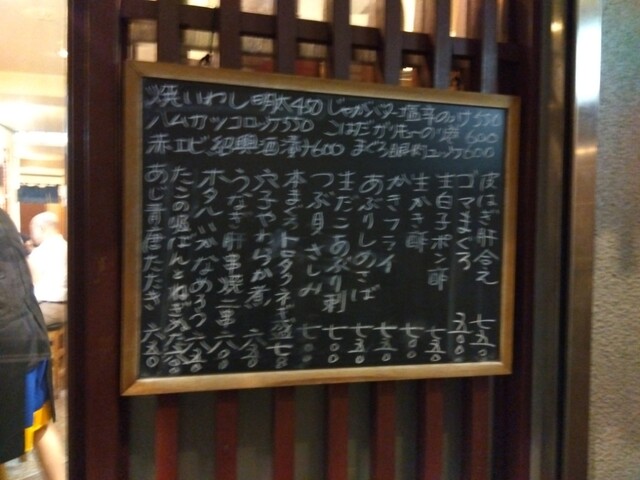 焼いわし明太450 じゃがバター塩辛のっけ550
ハムカツコロッケ550 こはだガリキューのり巻600
赤エビ紹興酒漬け600 まぐろ ユッケ600
皮はぎ肝合え 七五〇
ゴマまぐろ 五〇〇
生白子ポン酢 七五〇
生かき酢 七〇〇
かきフライ 七五〇
あぶりしめさば 七五〇
生だこあぶり刺 七〇〇
つぶ貝さしみ 七〇〇
本まぐろトロタクネギ
穴子やわらか煮 六五〇
うなぎ肝串焼二本 六〇〇
ホタルいかなめろう 六五〇
たこの
あじ青唐たたき 六五〇